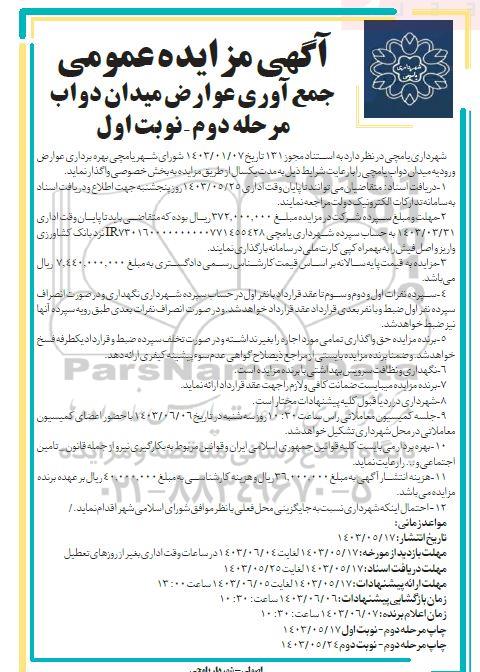 آگهی مزایده عمومی
جمع آوری عوارض میدان دواب
مرحله دوم - نوبت اول
شهرداری یامچی
شهرداری یامچی در نظر دارد به استناد مجوز ۱۳۱ تاریخ ۱۴۰۳/۰۱/۰۷ شورای شهر یامچی بهره برداری عوارض
ورودیه میدان دواب یامچی را با رعایت شرایط ذیل به مدت یکسال از طریق مزایده به بخش خصوصی واگذار نماید.
۱-دریافت اسناد: متقاضیان می توانند تا پایان وقت اداری ۱۴۰۳/۰۵/۲۵ روز پنجشنبه جهت اطلاع و دریافت اسناد
به سامانه تدارکات الکترونیک دولت مراجعه نمایند.
۲-مهلت و مبلغ سپرده شرکت در مزایده مبلغ ۳۷۲,۰۰۰,۰۰۰ ریال بوده که متقاضی باید تا پایان وقت اداری
۱۴۰۳/۰۳/۳۱ به حساب سپرده شهرداری یامچی IR۷۳۰۱۶۰۰۰۰۰۰۰۰۰۰۷۷۱۴۵۵۴۲۸ نزد بانک کشاورزی
واریز و اصل فیش را به همراه کپی کارت ملی در سامانه بارگذاری نمایند.
۳-مزایده به قیمت پایه سالانه بر اساس قیمت کارشناس رسمی دادگستری به مبلغ ۷,۴۴۰,۰۰۰,۰۰۰ ریال
می باشد.
۴-سپرده نفرات اول و دوم و سوم تا عقد قرارداد با نفر اول در حساب سپرده شهرداری نگهداری و در صورت انصراف
سپرده نفر اول ضبط و با نفر بعدی قرارداد عقد قرارداد خواهد شد. و در صورت انصراف نفرات بعدی طبق رویه سپرده آنها
نیز ضبط خواهد شد.
۵-برنده مزایده حق واگذاری تمامی مورد اجاره را بغیر نداشته و در صورت تخلف سپرده ضبط و قرارداد یکطرفه فسخ
خواهد شد. و ضمنا برنده مزایده بایستی از مراجع ذیصلاح گواهی عدم سوء پیشینه کیفری ارائه دهد.
۶-نگهداری و نظافت سرویس بهداشتی با برنده مزایده است.
۷-برنده مزایده میبایست ضمانت کافی و لازم را جهت عقد قرارداد ارائه نماید.
۸-شهرداری در رد یا قبول کلیه پیشنهادات مختار است.
۹-جلسه کمیسیون معاملاتی راس ساعت ۱۰:۳۰ روز سه شنبه در تاریخ ۱۴۰۳/۰۶/۰۶ با حضور اعضای کمیسیون
معاملاتی در محل شهرداری تشکیل خواهد شد.
۱۰-بهره بردار می بایست کلیه قوانین جمهوری اسلامی ایران و قوانین مربوط به بکارگیری نیرو از جمله قانون تامین
اجتماعی و... را رعایت نماید.
۱۱-هزینه انتشار آگهی به مبلغ ۳۶,۰۰۰,۰۰۰ ریال و هزینه کارشناسی به مبلغ ۴۰,۰۰۰,۰۰۰ ریال بر عهده برنده
مزایده می باشد.
۱۲-احتمال اینکه شهرداری نسبت به جایگزینی محل فعلی با نظر موافق شورای اسلامی شهر اقدام نماید./
مواعد زمانی:
تاریخ انتشار: ۱۴۰۳/۰۵/۱۷
مهلت بازدید از مورخه: ۱۴۰۳/۰۵/۱۷ لغایت ۱۴۰۳/۰۶/۰۴ در ساعات وقت اداری بغیر از روزهای تعطیل
مهلت دریافت اسناد: ۱۴۰۳/۰۵/۱۷ لغایت ۱۴۰۳/۰۵/۲۵
مهلت ارائه پیشنهادات: ۱۴۰۳/۰۵/۱۷ لغایت ۱۴۰۳/۰۶/۰۵ ساعت ۱۳:۰۰
زمان بازگشایی پیشنهادات: ۱۴۰۳/۰۶/۰۶ ساعت: ۱۰:۳۰
زمان اعلام برنده: ۱۴۰۳/۰۶/۰۷ ساعت: ۱۰:۳۰
چاپ مرحله دوم - نوبت اول ۱۴۰۳/۰۵/۱۷
چاپ مرحله دوم - نوبت دوم ۱۴۰۳/۰۵/۲۴
اصولی - شهردار یامچی
ParsNamad
۰۲۱-۸۸۳۴۹۶۷۰-۵